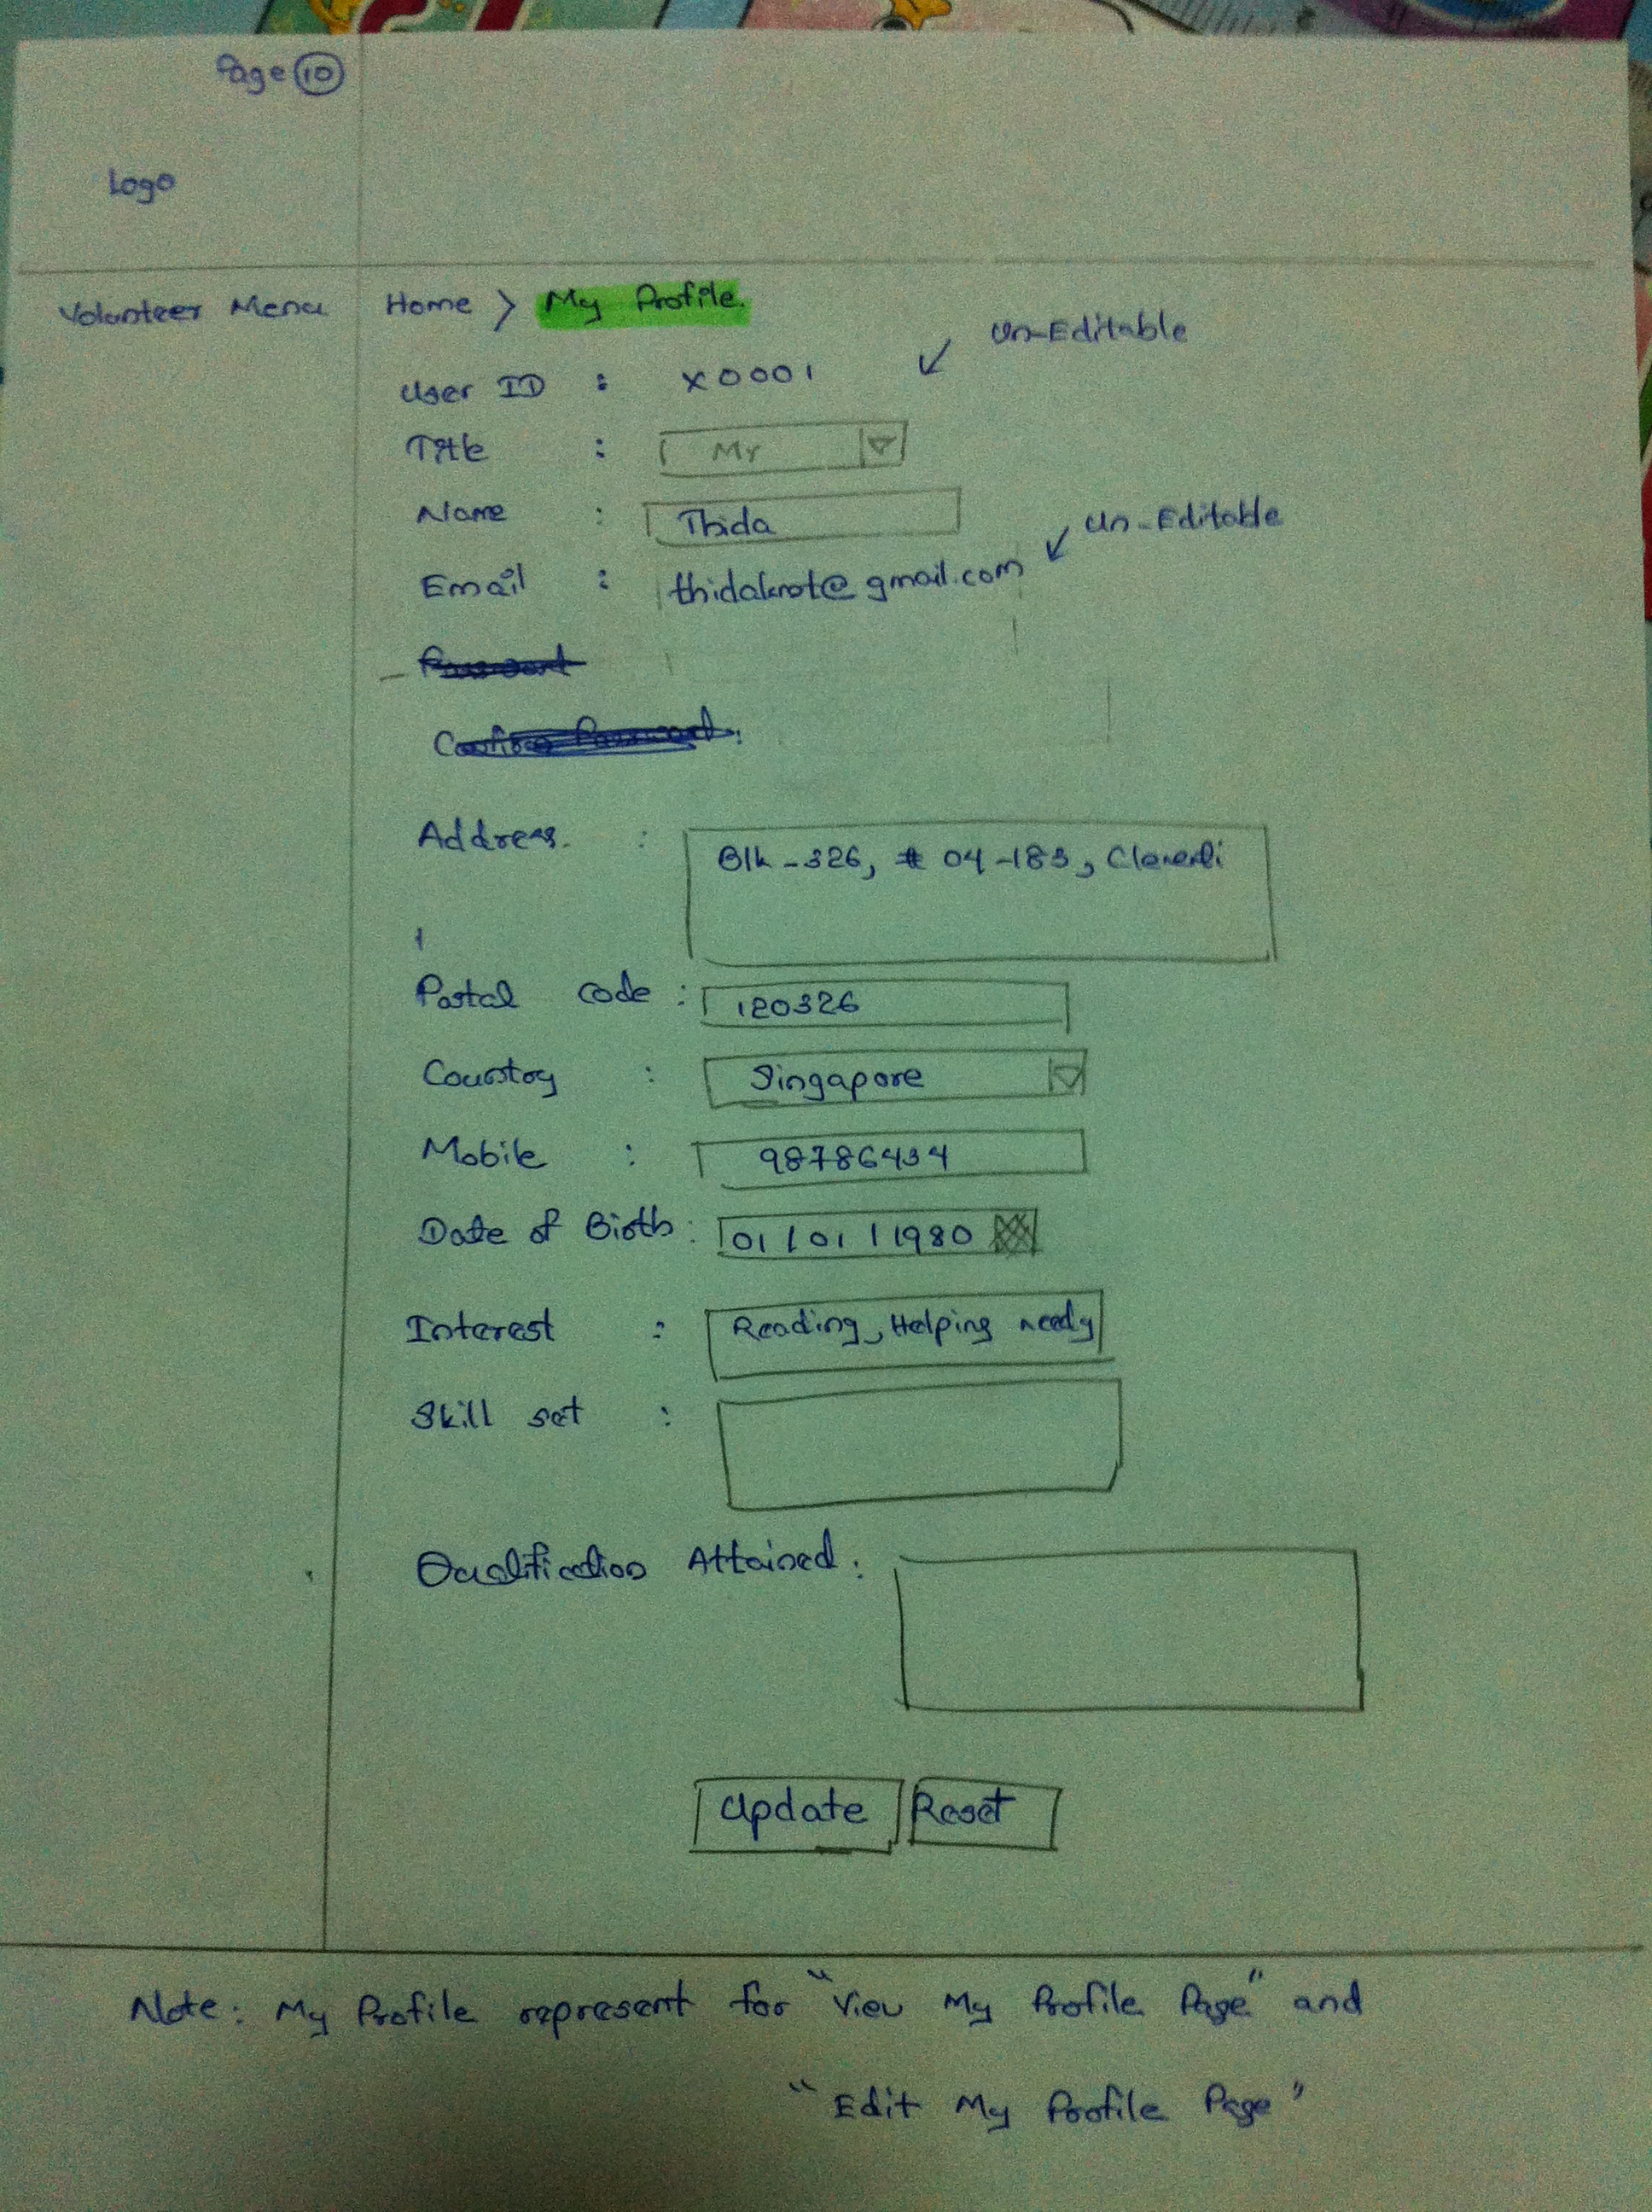 Page 10
Logo
Volunteer Menu Home > My Profile.
Un-Editable
User ID : X0001
Title : Mr
Name : Thida
Un-Editable
Email :
Address. : Blk-326, # 04-183, Clementi
Postal code : 120326
Country : Singapore
Mobile : 98786434
Date of Birth : 01/01/1980
Interest : Reading, Helping needy
Skill set :
Qualification Attained :
Update Reset
Note: My Profile represent for "View My Profile Page" and
"Edit My Profile Page"